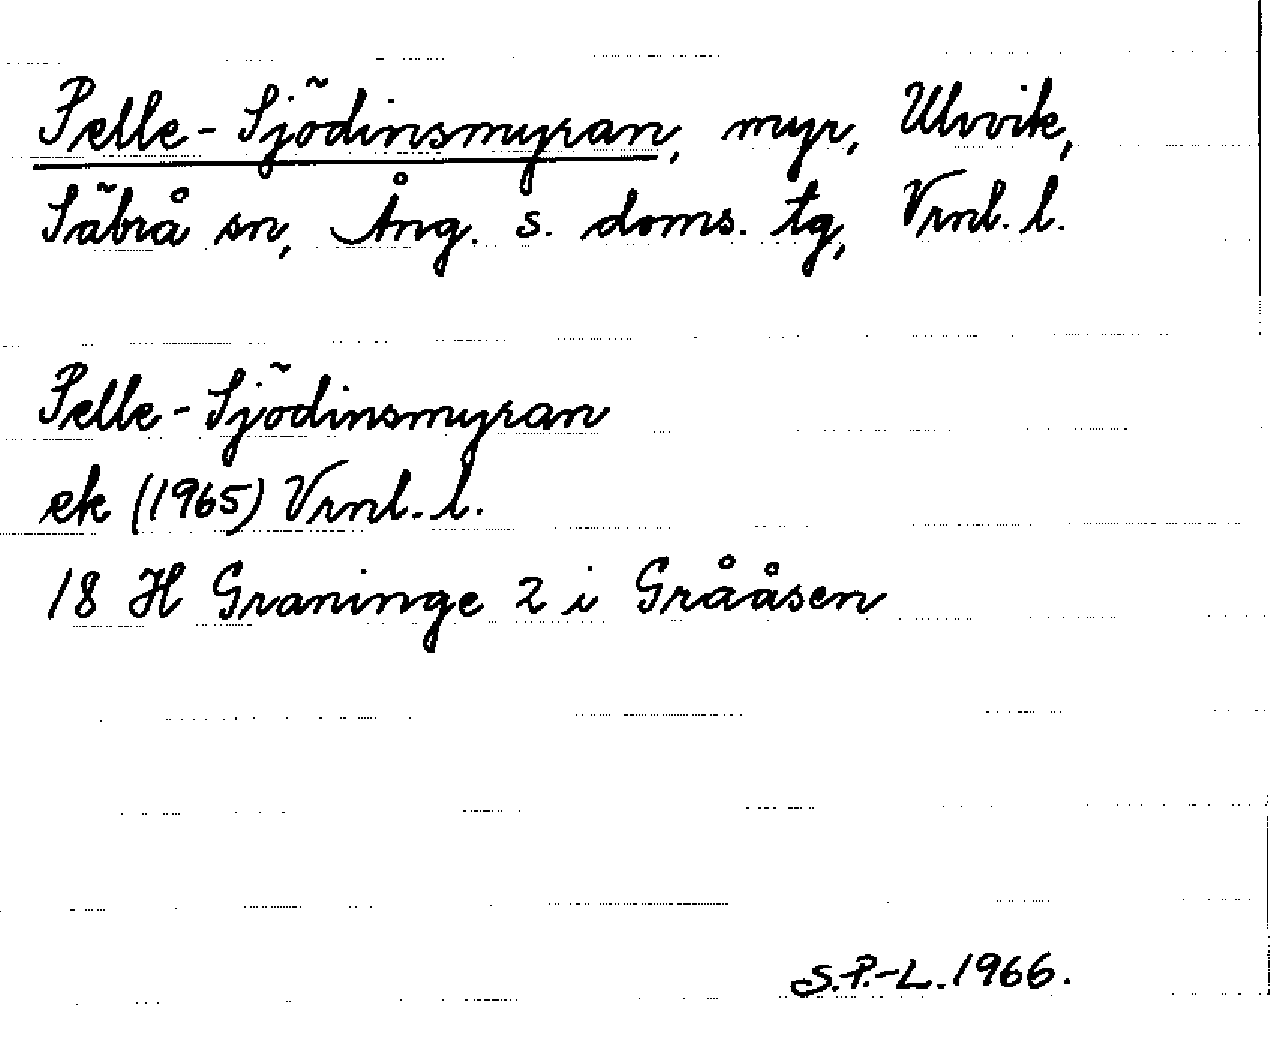 Pelle-Sjödinsmyran, myr, Ulvvik,
Säbrå sn, Ång. s. doms. tg, Vrnl. l.
Pelle-Sjödinsmyran
ek (1965) Vrnl. l.
18 H Graninge 2 i Grååsen
S.P.-L. 1966.